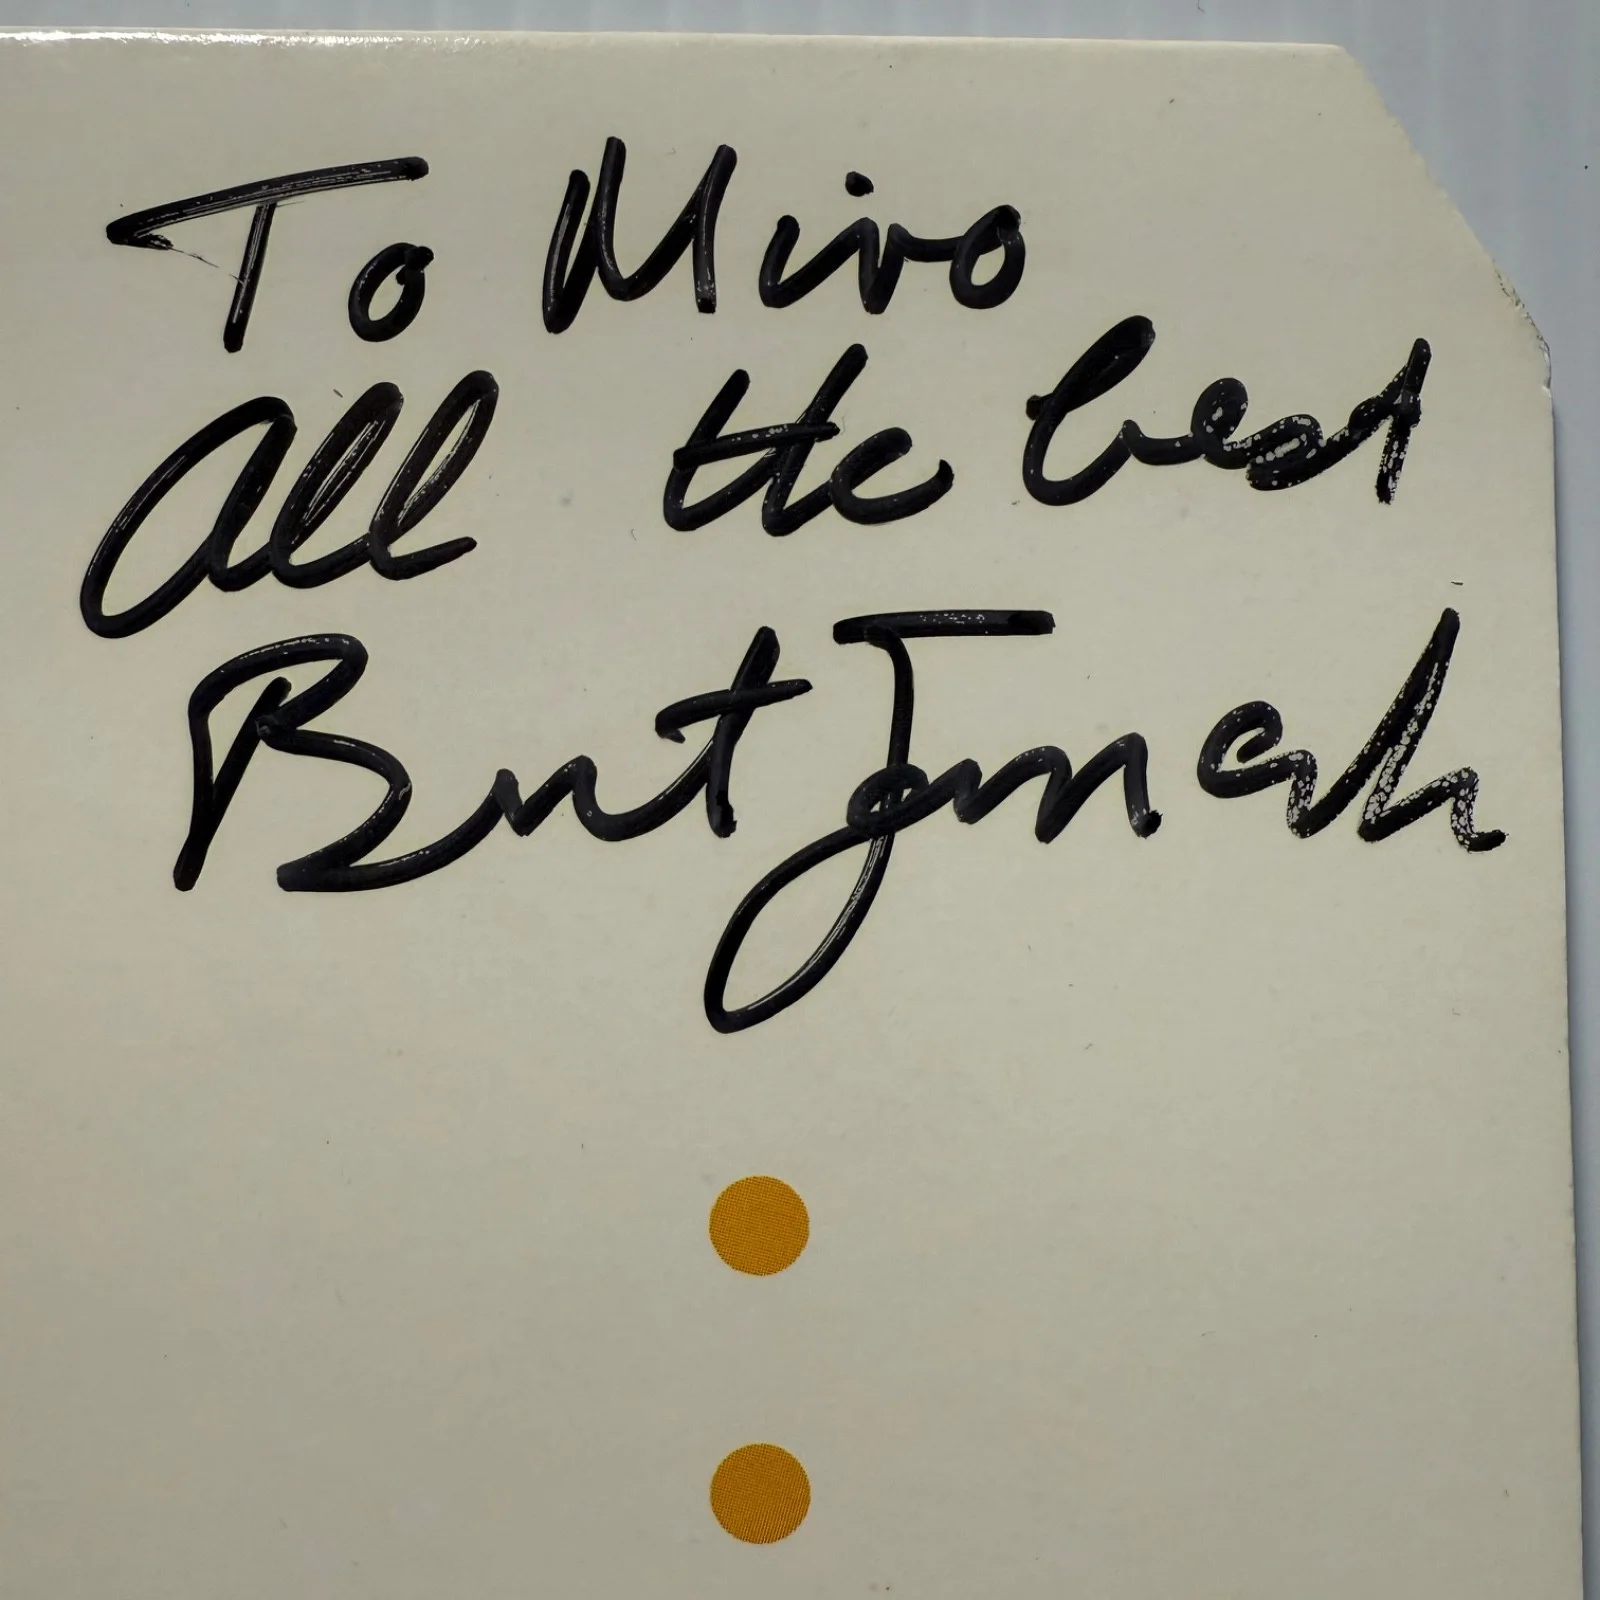 To Miro
All the best
Bert Jansch